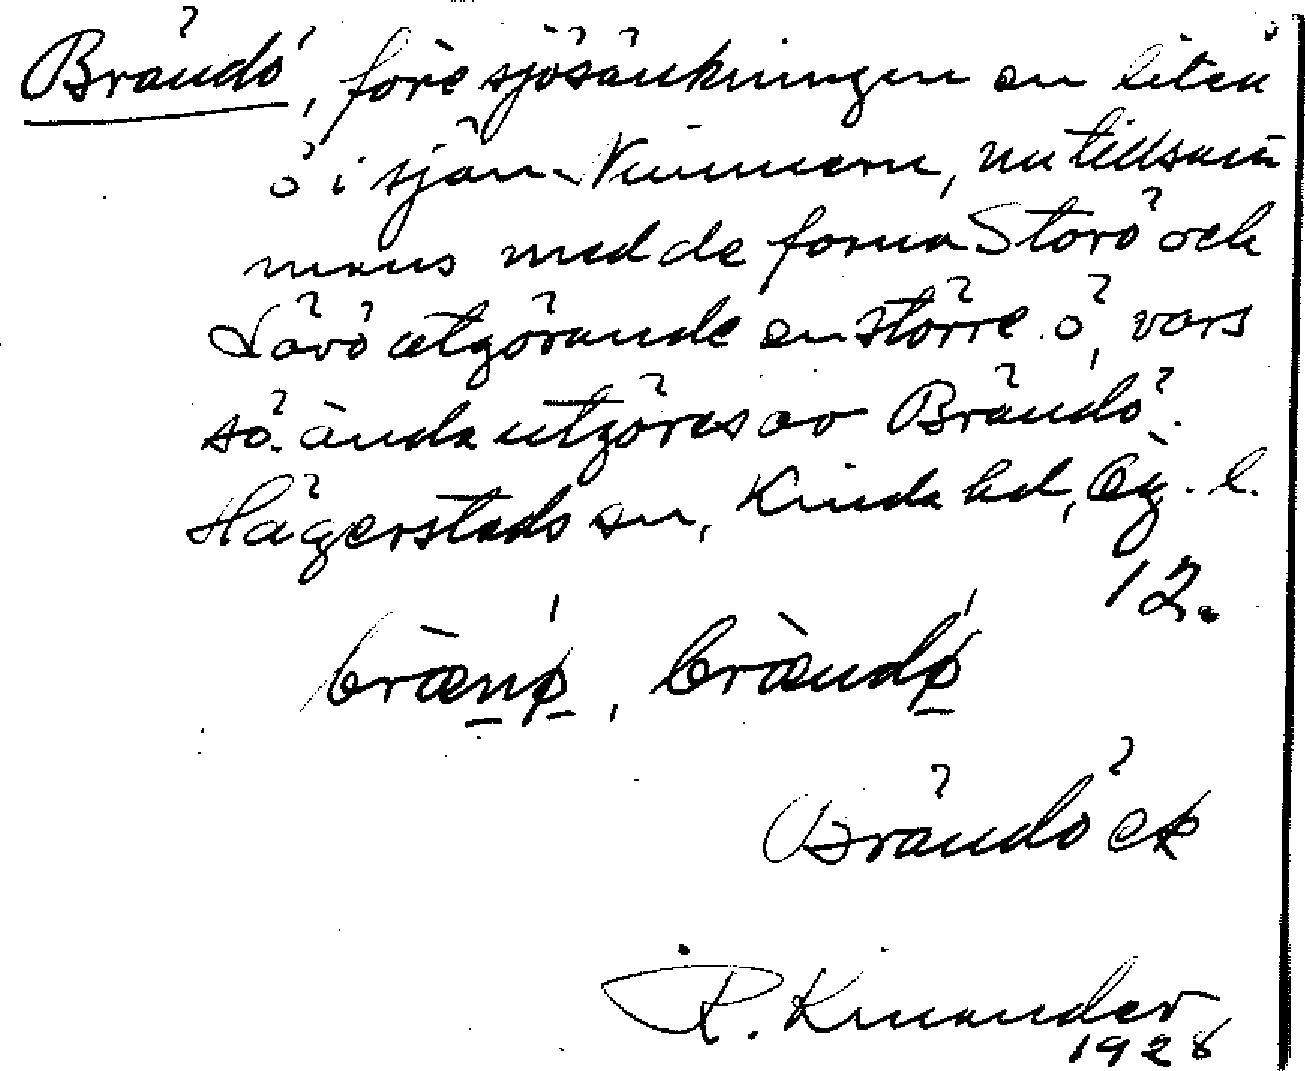 Brändö, före sjösänkningen en liten
ö i sjön Nimmern, nu tillsam̄
mans med de forna Storö och
Lövö utgörande en större ö, vars
sö. ända utgöres av Brändö.
Hägerstads sn, Kinda hd, Ög. l.
12.
bræ̀nø, bræ̀ndø
Brändö ek
R. Kinander
1928